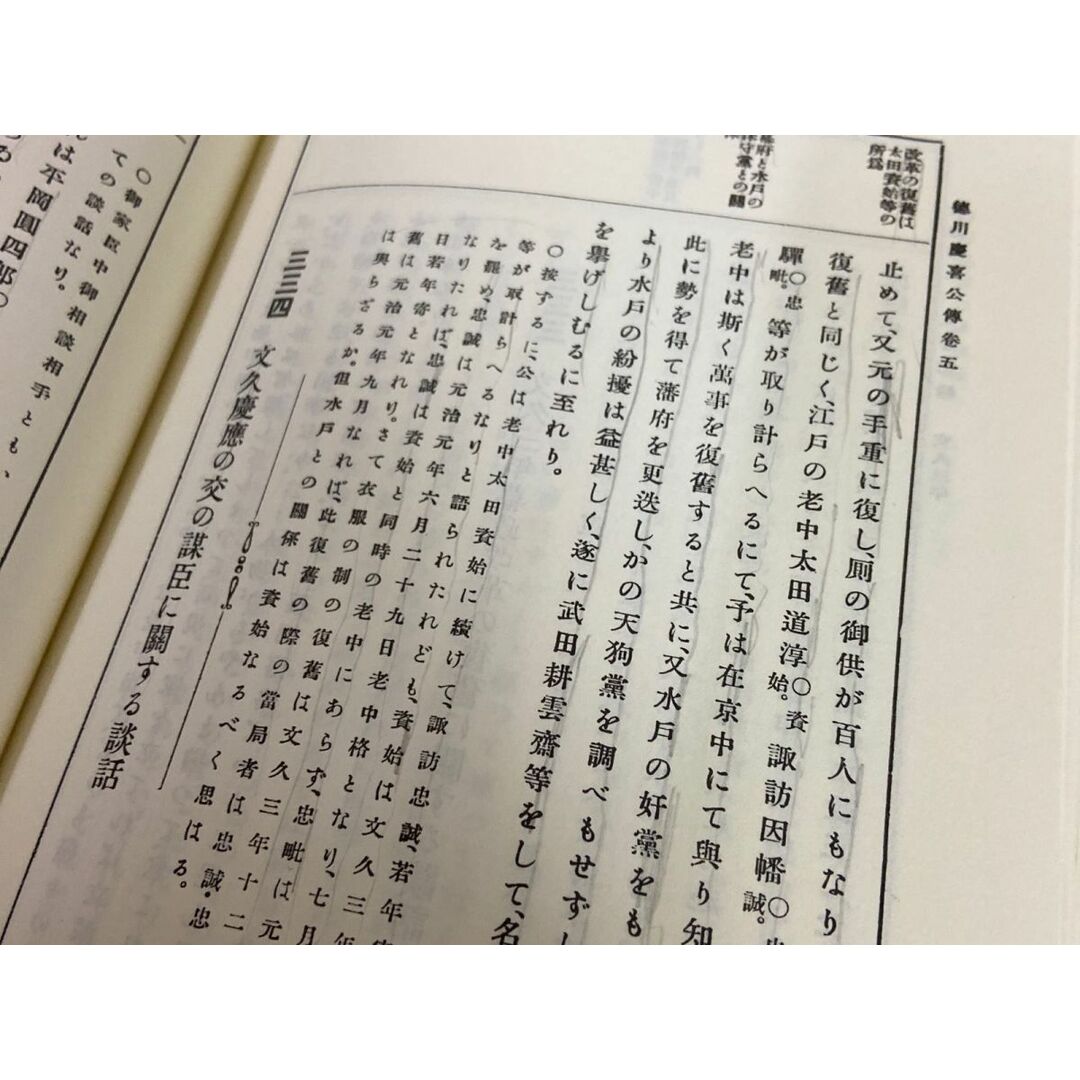 德川慶喜公傳卷五
改革の復舊は
太田資始等の
所爲
幕府と水戸の
保守黨との關
止めて、又元の手重に復し、厠の御供が百人にもなり
復舊と同じく、江戸の老中太田道淳〇資始。諏訪因幡〇忠誠。
驒〇忠毗。等が取り計らへるにて、予は在京中にて與り知
老中は斯く萬事を復舊すると共に、又水戸の奸黨をも
此に勢を得て藩府を更迭し、かの天狗黨を調べもせずし
より水戸の紛擾は益甚しく、遂に武田耕雲齋等をして、名
を擧げしむるに至れり。
〇按ずるに、公は老中太田資始に續けて、諏訪忠誠、若年
等が取計らへるなりと語られたれども、資始は文久三年
を罷め、忠誠は元治元年六月二十九日老中格となり、七月
なりたれば、忠誠は資始と同時の老中にあらず、忠毗は元
日若年寄となれり。さて衣服の制の復舊は文久三年十二
舊は元治元年九月なれば、此復舊の際の當局者は忠誠・忠
は與らざるか。但水戸との關係は資始なるべく思はる。
三三四
文久慶應の交の謀臣に關する談話
〇御家臣中御相談相手とも、
ての談話なり。
は平岡圓四郎〇